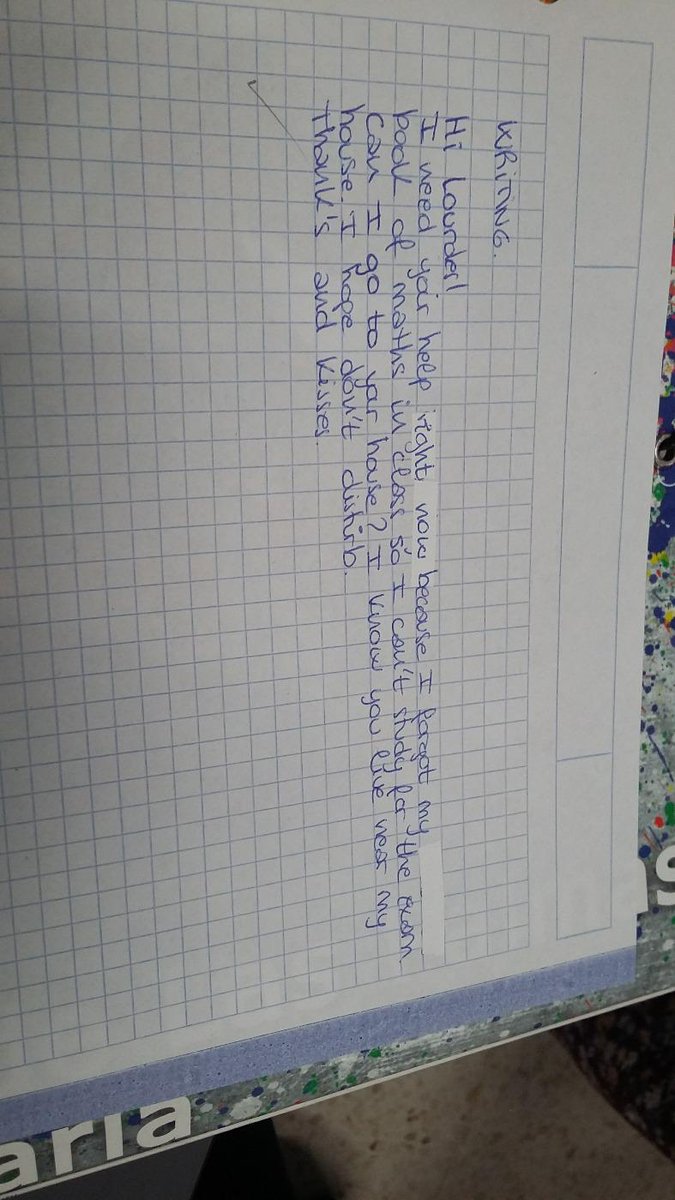 WRITING.
Hi Lourdes!
I need your help right now because I forgot my
book of maths in class so I can't study for the exam.
Can I go to your house? I know you live near my
house. I hope don't disturb.
Thank's and kisses.
aria